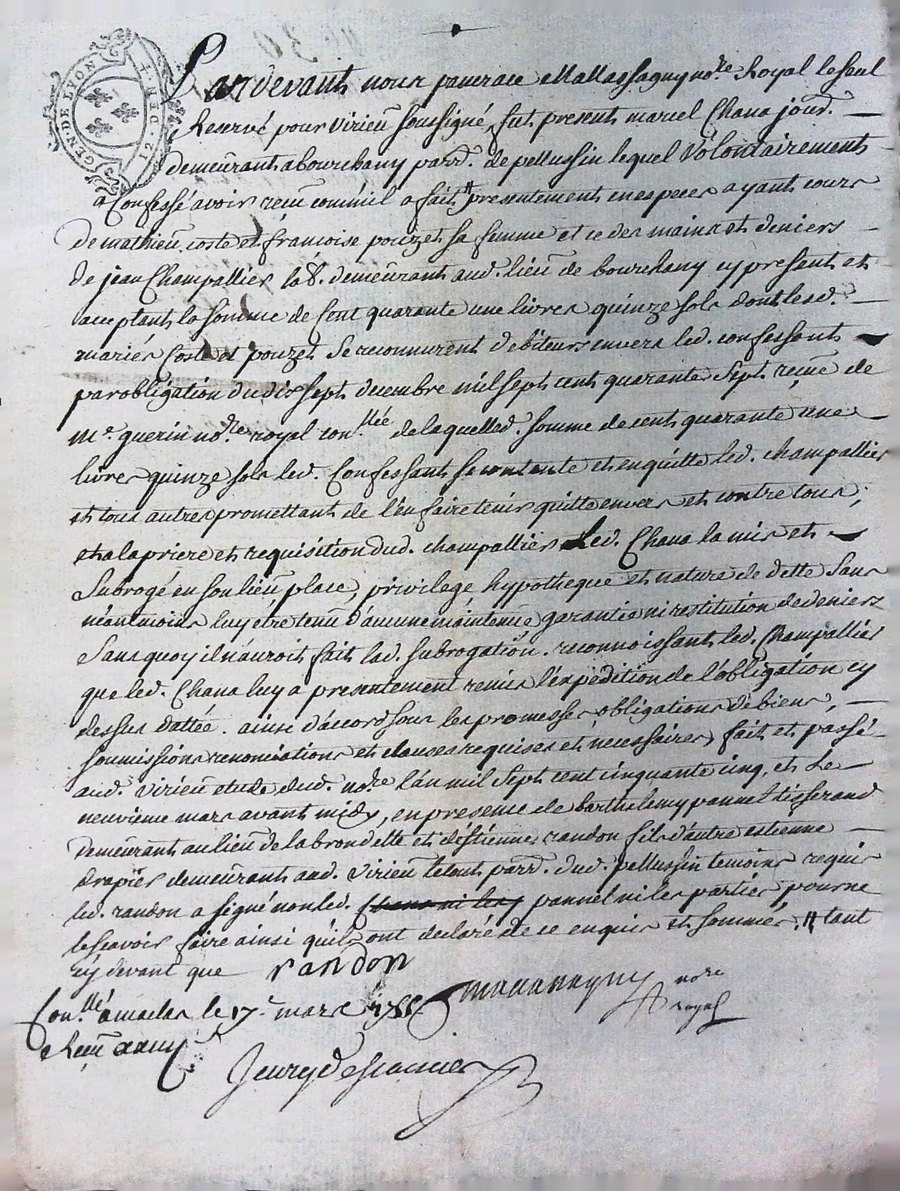 GEN. DE LYON
Pardevant nous pancrace Mallassagny no.re Royal le seul
Reservé pour virieu soussigné, fut present marcel Chana jour.r
demeurant a bourchany parr. de pellussin lequel Volontairement
a Confessé avoir reçu comm'il a fait # presentement en especes ayant cours
de mathieu coste et francoise pouzet sa femme et ce des mains et deniers
de jean Champallier lab. demeurant aud. lieu de bourchany cy present et
acceptant la somme de Cent quarante une livres quinze sols dont lesd.
mariés Coste et pouzet Se reconnurent debiteurs envers led. confessant
par obligation du dix sept decembre mil sept cent quarante sept reçue de
m.e guerin no.re royal con.llée de laquelled. somme de cent quarante une
livre quinze sols led. Confessant se contente et en quitte led. champallier
et tous autres promettant de l'en faire tenir quitte envers et contre tous,
et a la priere et requisition dud. champallier Led. Chana la mis et
subrogé en son lieu place, privilege hypotheque et nature de dette Sans
néantmoins luy etre tenu d'aucune maintenüe garantie ni restitution de deniers
Sans quoy il n'auroit fait lad. subrogation. reconnoissant led. Champallier
que led. Chana luy a presentement remis l'expédition de l'obligation cy
dessus dattée. ainsi d'accord sous les promesses, obligations de biens,
soumissions renonciations et clauses requises et necessaires, fait et passé
aud. virieu etude dud. no.re l'an mil sept cent cinquante cinq, et Le
neuvieme mars avant midy, en presence de barthelemy pannel tisserand
demeurant au lieu de la brondelle et d'estienne randon fils d'autre estienne
drapier demeurant aud. virieu le tout parr. dud. pellussin temoins requis
led. randon a signé non led. pannel ni les parties pour ne
le scavoir faire ainsi quils ont declaré de ce enquis et sommés, # tant
cy devant que randon
mallassagny no.re
royal
Con.llé a maclas le 17.e mars 1755